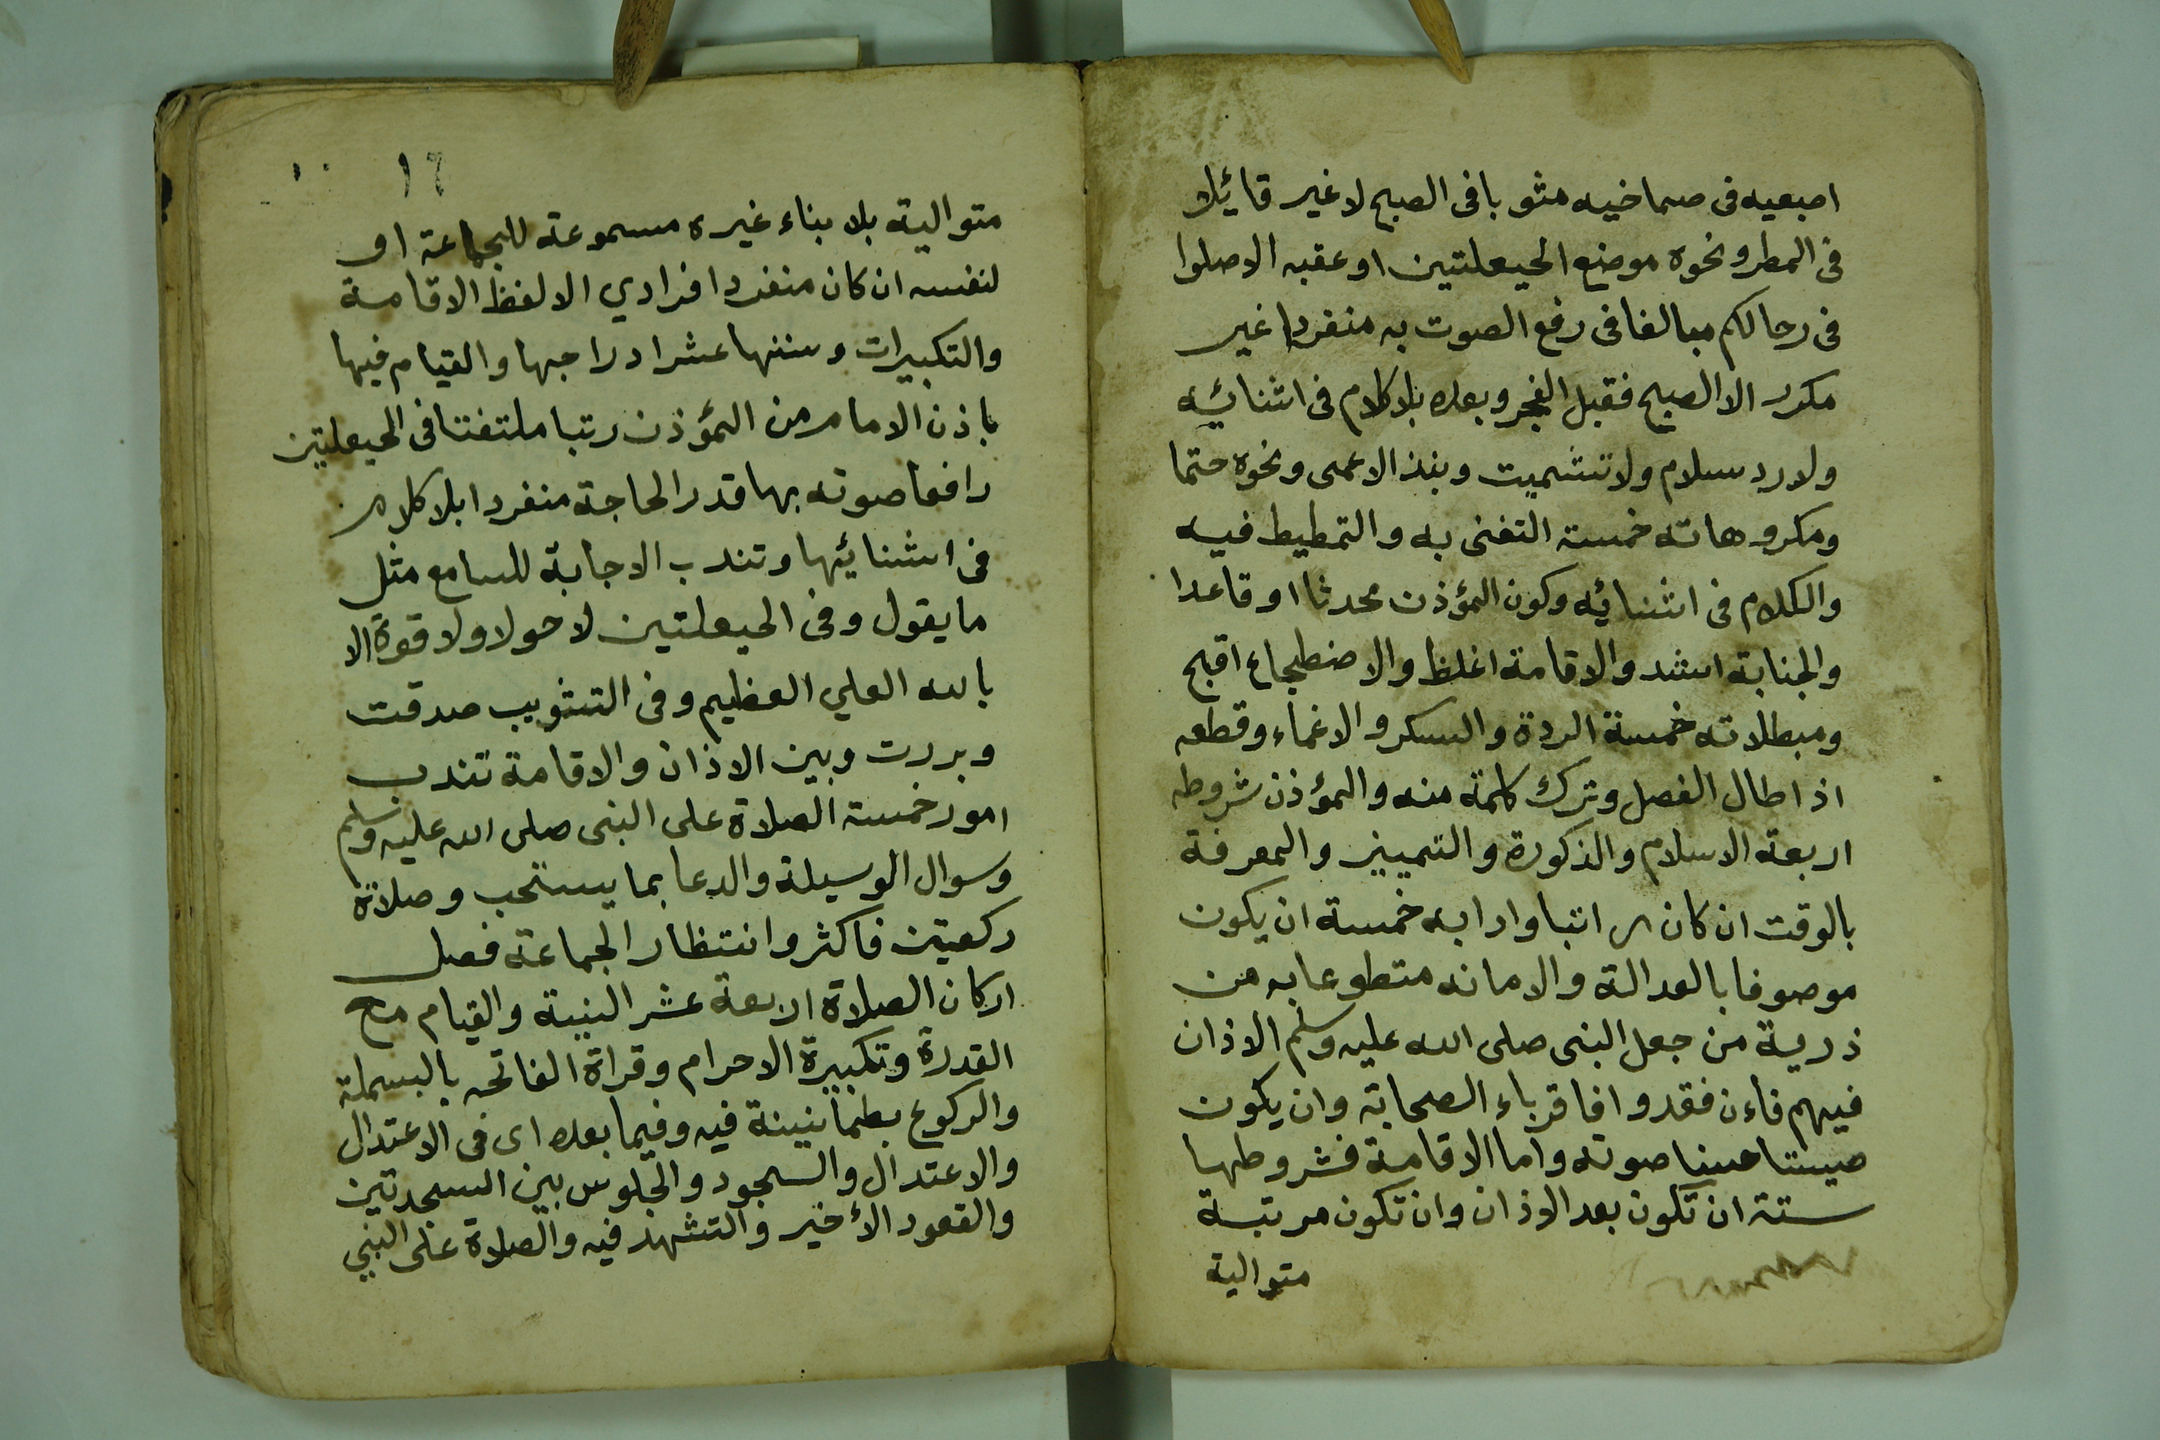 اصبعيه فى صماخيه مثوبا فى الصبح لا غير قائيلا
فى المطر ونحوه موضع الحيعلتين او عقبه الا صلوا
فى رحالكم مبالغا فى رفع الصوت به منفردا غير
مكرر الا الصبح فقبل الفجر وبعده بلا كلام فى اثنائيه
ولا رد سلام ولا تشميت وبنذ الاعمى ونحوه حتما
ومكروهاته خمسة التغنى به والتمطيط فيه
والكلام فى اثنائيه وكون المؤذن محدثا او قاعدا
والجنابة اشد والاقامة اغلظ والاضطجاع اقبح
ومبطلاته خمسة الردة والسكر والاغماء وقطعه
اذا طال الفصل وترك كلمة منه والمؤذن شروطه
اربعة الاسلام والذكورة والتمييز والمعرفة
بالوقت ان كان راتبا وادابه خمسة ان يكون
موصوفا بالعدالة والامانه متطوعا به من
ذرية من جعل النبى صلى الله عليه وسلم الاذان
فيهم فاءن فقدوا فاقرباء الصحابة وان يكون
صيتا حسنا صوته واما الاقامة فشروطها
ستة ان تكون بعد الاذان وان تكون مرتبة
متوالية
١٦
متوالية بلا بناء غيره مسموعة للجماعة او
لنفسه ان كان منفردا فرادي الا لفظ الاقامة
والتكبيرات وسننها عشر ادراجها والقيام فيها
باذن الامام من المؤذن رتبا ملتفتا فى الحيعلتين
رافعا صوته بها قدر الحاجة منفردا بلا كلام
فى اثنائيها وتندب الاجابة للسامع مثل
ما يقول وفى الحيعلتين لا حولا ولا قوة الا
بالله العلي العظيم وفى التثويب صدقت
وبررت وبين الاذان والاقامة تندب
امور خمسة الصلاة على النبى صلى الله عليه وسلم
وسوال الوسيلة والدعا بما يستحب وصلاة
ركعتين فاكثر وانتظار الجماعة فصل
اركان الصلاة اربعة عشر النيية والقيام مع
القدرة وتكبيرة الاحرام وقراة الفاتحه بالبسملة
والركوع بطمانيينة فيه وفيما بعده اى فى الاعتدال
والاعتدال والسجود والجلوس بين السجدتين
والقعود الأخير والتشهد فيه والصلاة على النبي